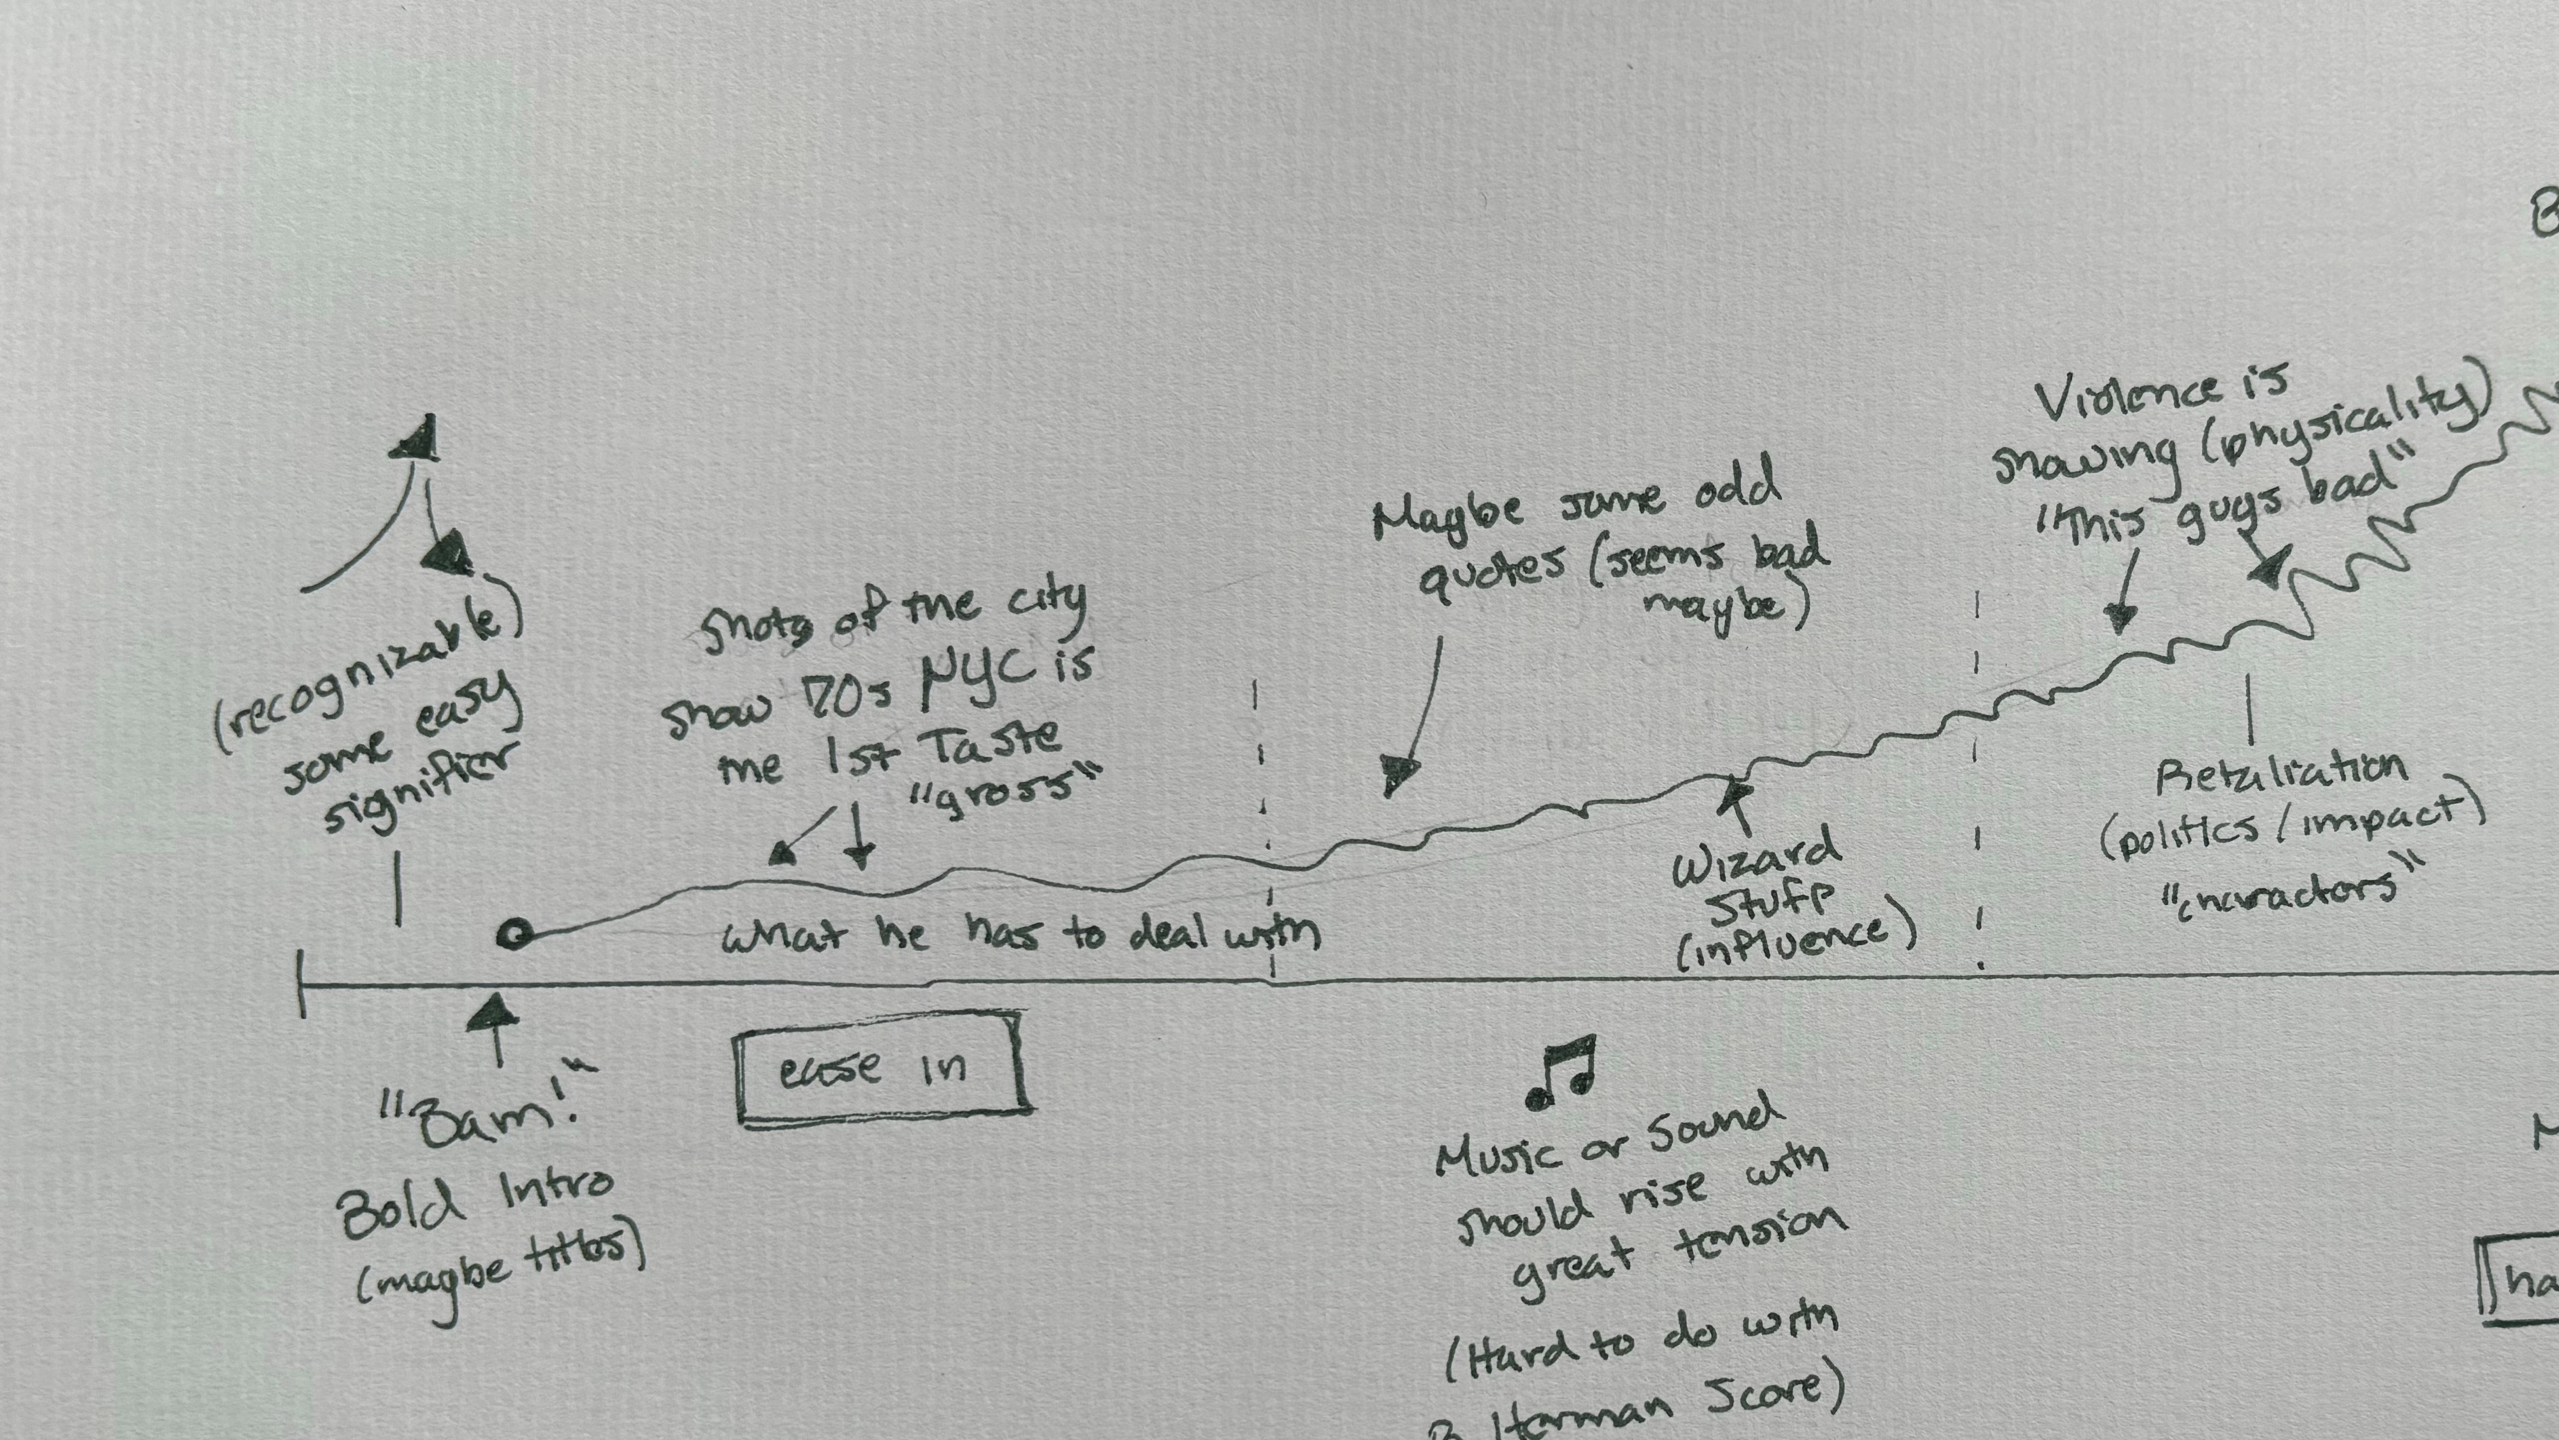 (recognizable)
some easy
signifier
"Bam!"
Bold Intro
(maybe titles)
shots of the city
show 70s NYC is
the 1st Taste
"gross"
what he has to deal with
ease in
Maybe some odd
quotes (seems bad
maybe)
Wizard
Stuff
(influence)
Music or Sound
should rise with
great tension
(Hard to do with
B. Herman Score)
Violence is
showing (physicality)
"This guys bad"
Retaliation
(politics / impact)
"charactors"